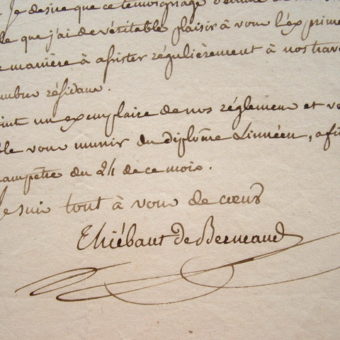 Je desire que ce témoignage d'estime
que j'ai de véritable plaisir à vous l'exprimer
manière à assister régulièrement à nos trav
membre résidant.
joint un exemplaire de nos réglemens et vo
vous munir du diplôme Linnéen, afin
champêtre du 24 de ce mois.
Je suis tout à vous de cœur
Thiébaut de Berneaud